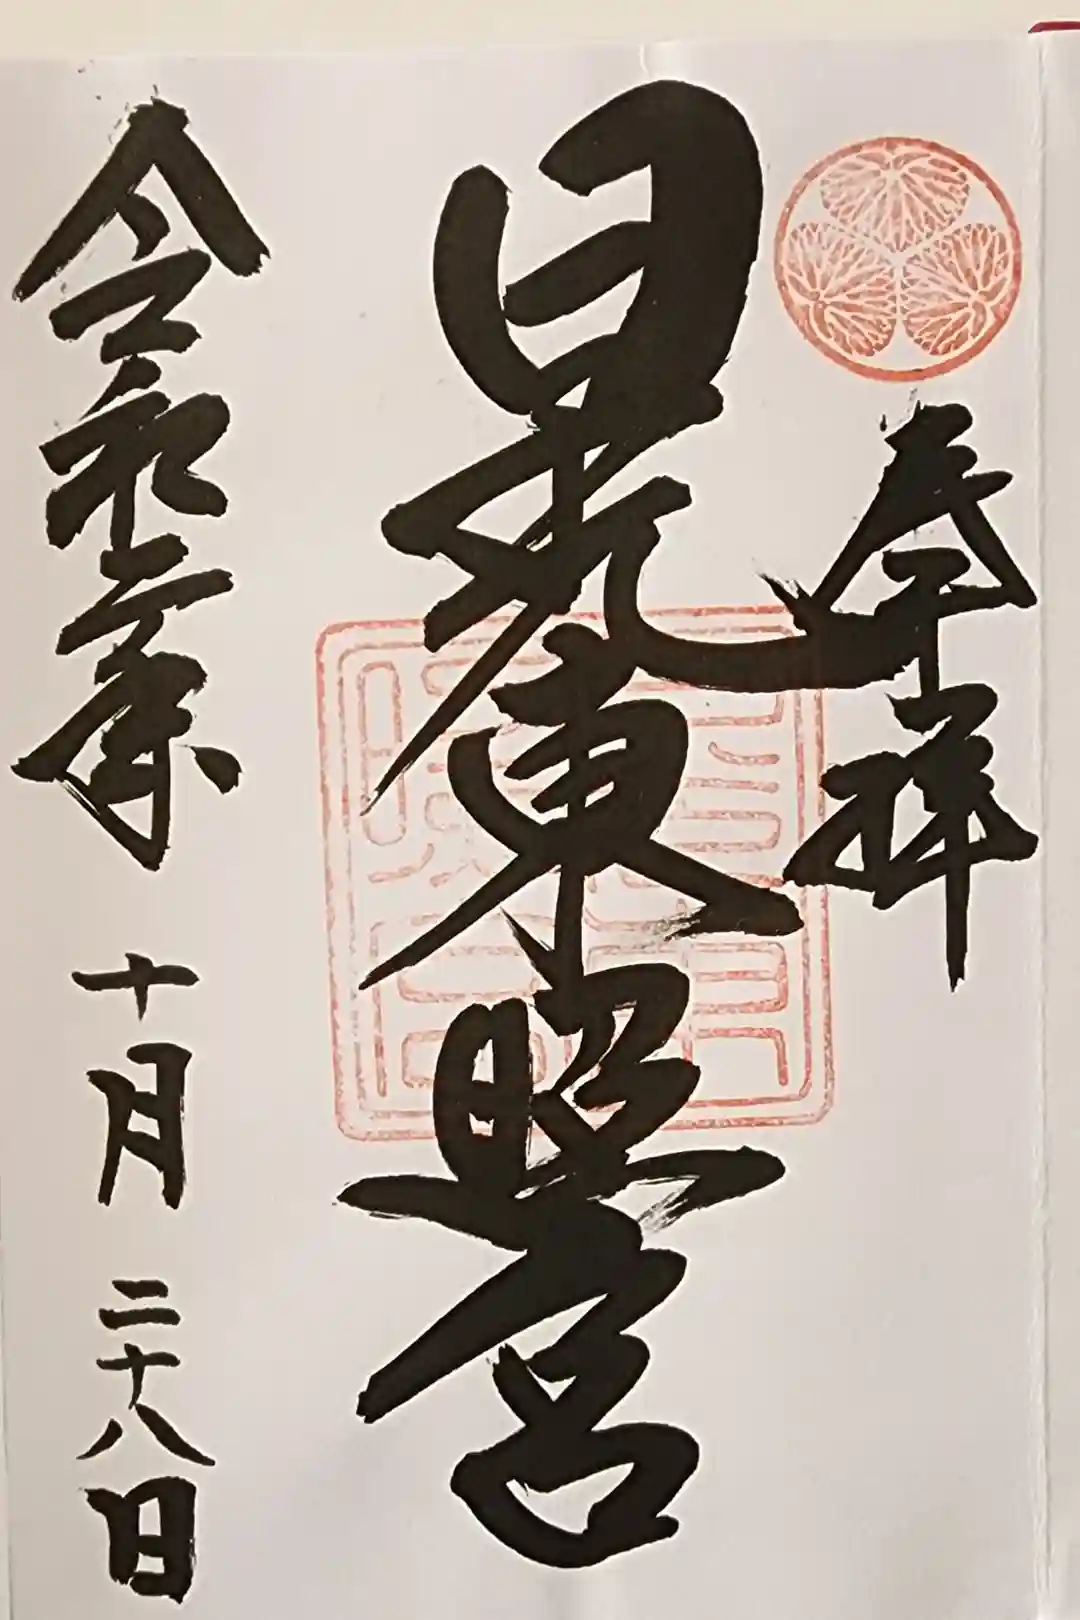 奉拝
日光東照宮
令和二年 十月 二十八日